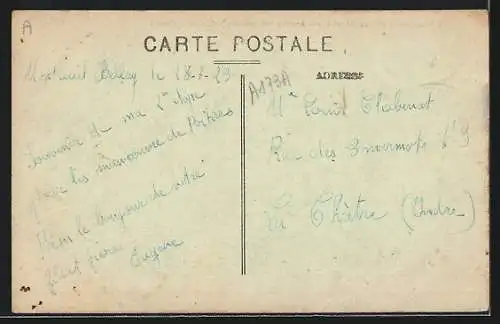 A
CARTE POSTALE
Montreuil Bellay le 18-8-23
Souvenir de ma 2e étape
pour les manœuvres de Poitiers
Bien le bonjour de votre
frère
Eugène
ADRESSE
A173A
Mr Louis Chabenat
Rue des N° 9
La Châtre (Indre)